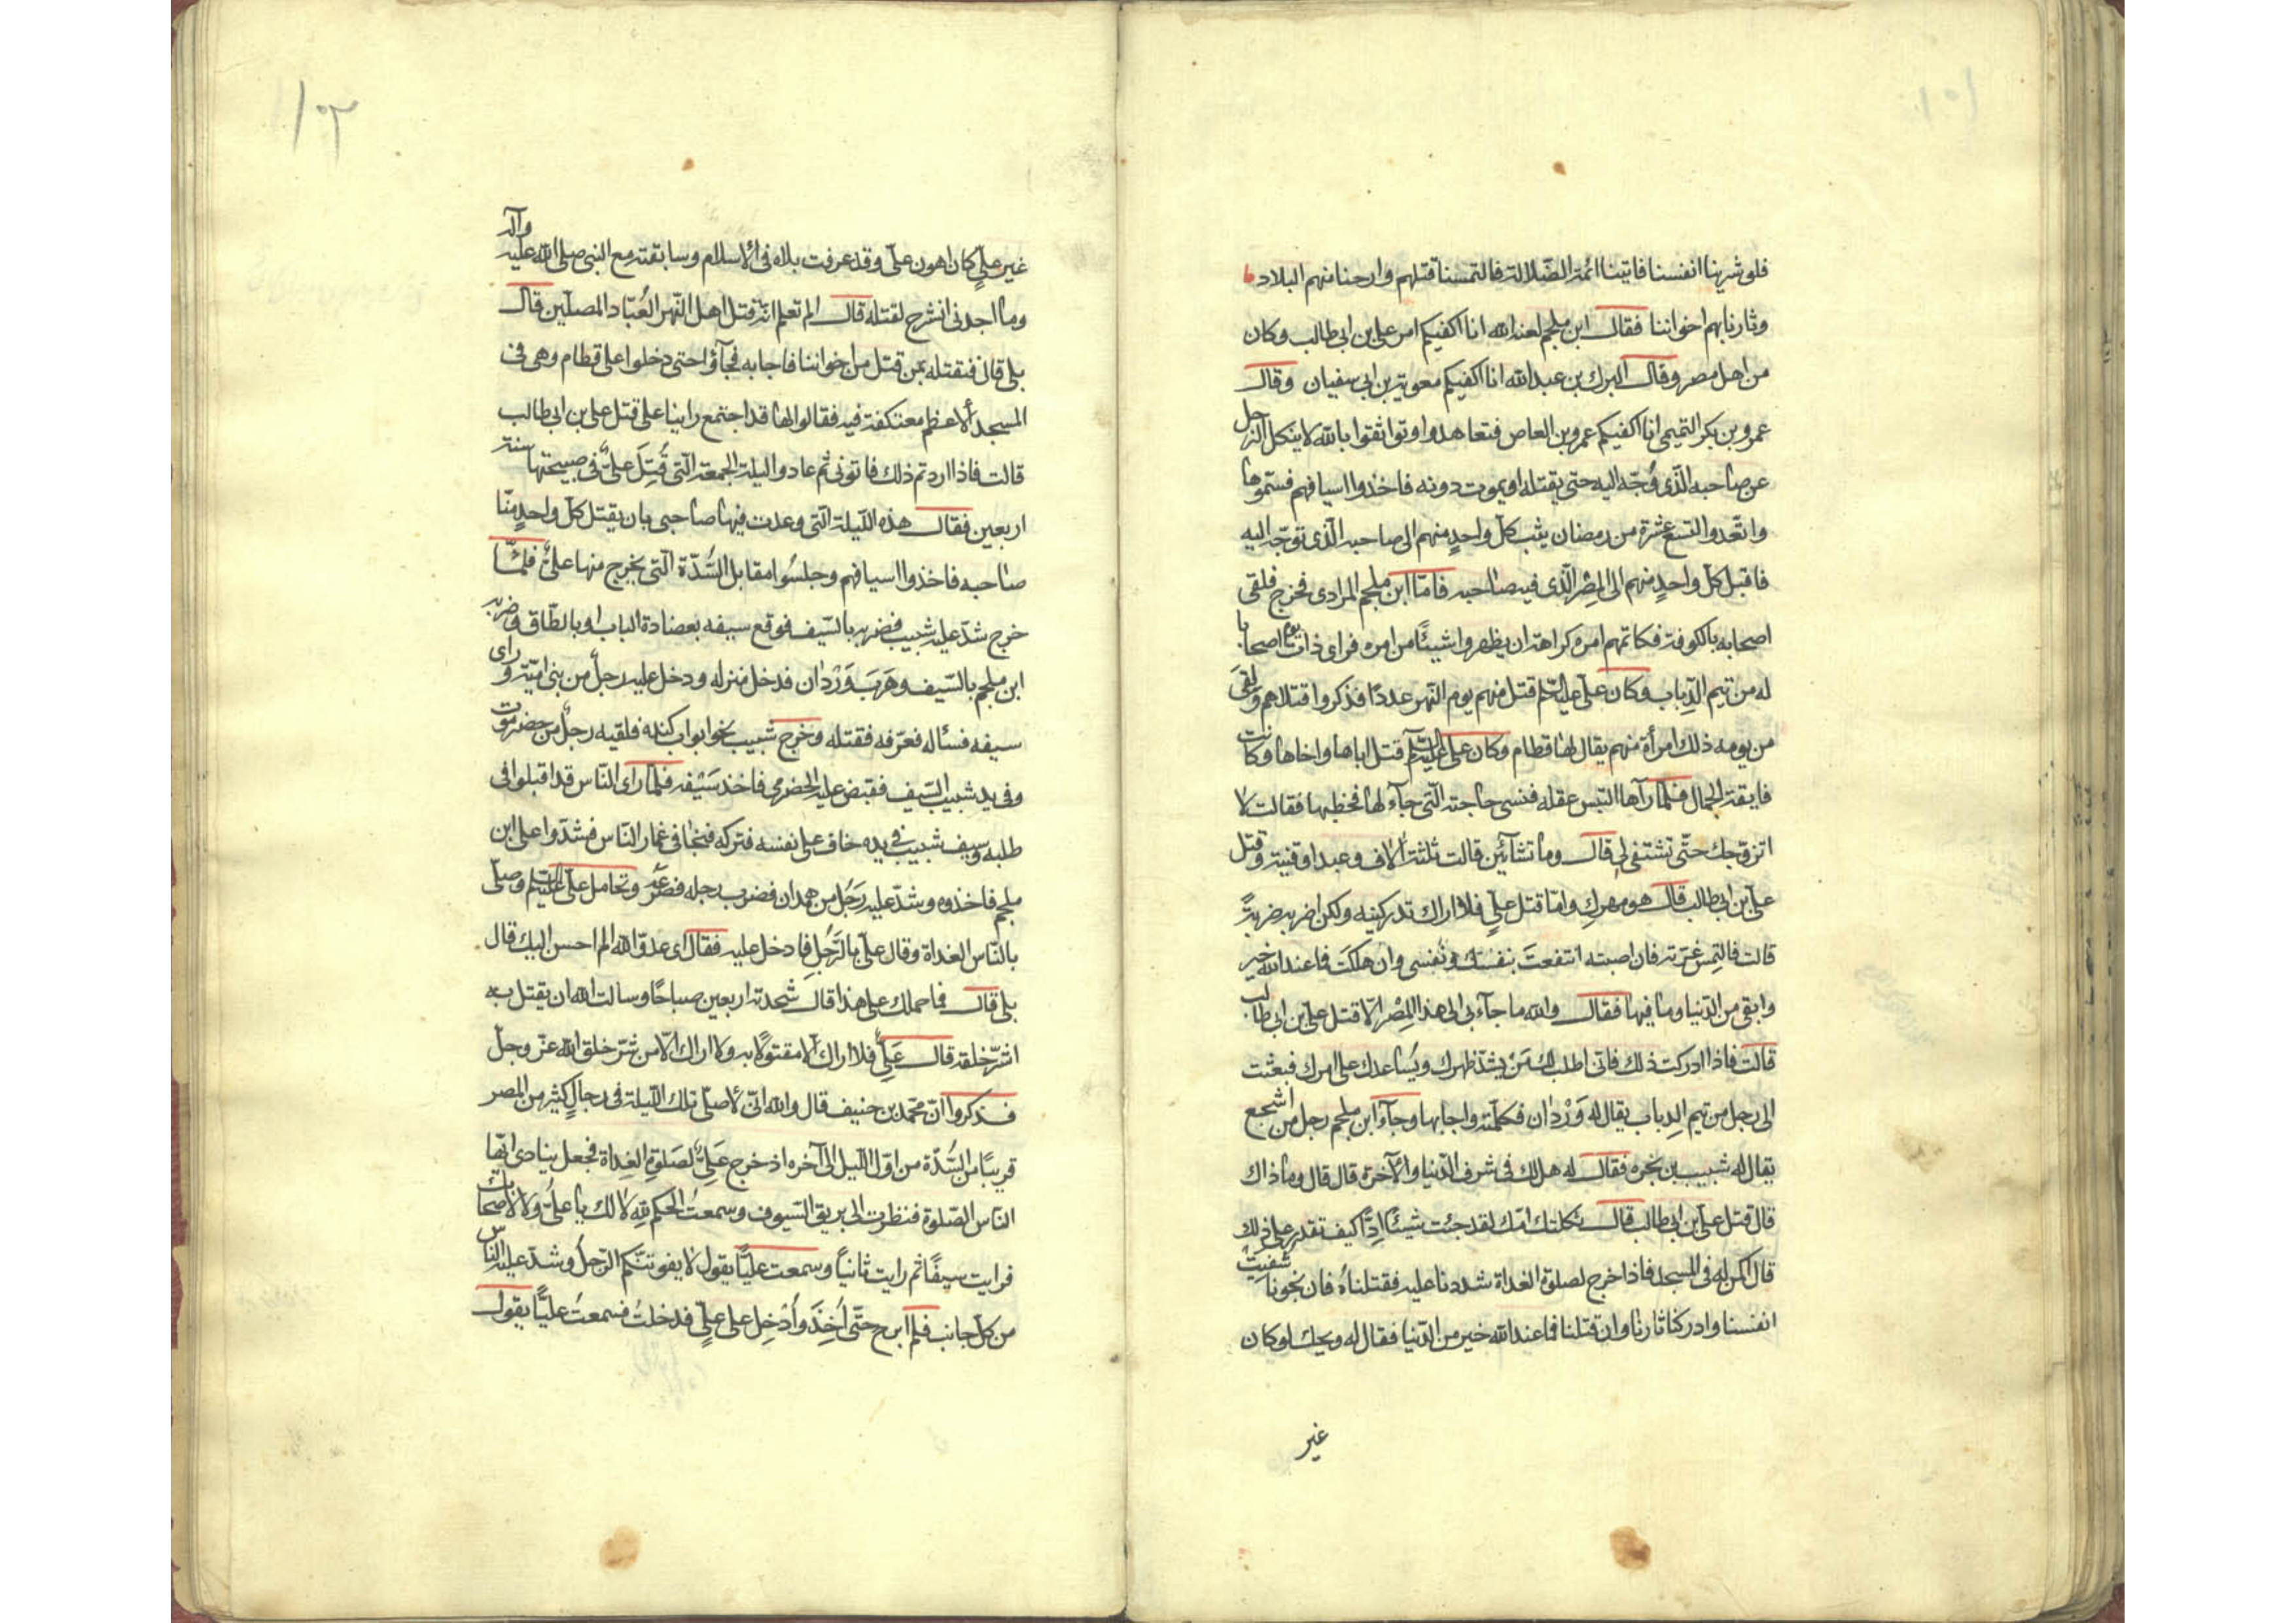 ١٠١
فلو شرينا انفسنا فاتينا ائمة الضّلالة فالتمسنا قتلهم وارحنا منهم البلاد
وثارنا بهم اخواننا فقال ابن ملجم لعنه الله انا اكفيكم امر على بن ابى طالب وكان
من اهل مصر وقال البرك بن عبدالله انا اكفيكم معوية بن ابى سفيان وقال
عمرو بن بكر التميمى انا اكفيكم عمرو بن العاص فتعاهدوا وتواثقوا بالله لا ينكل الرّجل
عن صاحبه الّذى وُجّه اليه حتى يقتله او يموت دونه فاخذوا اسيافهم فسمّوها
واتّعدوا التسع عشرة من رمضان يثب كلّ واحدٍ منهم الى صاحبه الّذى توجّه اليه
فاقبل كلّ واحدٍ منهم الى المِصْر الّذى فيه صاحبه فامّا ابن ملجم المرادى فخرج فلقى
اصحابه بالكوفة فكاتمهم امره كراهة ان يظهروا شيئًا من امره فراى ذات يوم اصحابا
له من تيم الرِّباب وكان علىّ عليه السّلم قتل منهم يوم النّهر عددًا فذكروا قتلاهم ولقىَ
من يومه ذلك امرأة منهم يقال لها قطام وكان علىّ عليه السّلم قتل اباها واخاها وكانت
فايقة الجمال فلمّا رآها التبس عقله فنسى حاجته الّتى جآء لها فخطبها فقالت لا
اتزوّجك حتّى تشتفى لى قال وما تشائين قالت ثلثة آلاف وعبد وقينة وقتل
علىّ بن ابى طالب قال هو مهركِ وامّا قتل علىٍّ فلا اراك تدركينه ولكن اضربه ضربةً
قالت فالتمِس غرّته فان اصبته انتفعتَ بنفسك ونفسى وان هلكتَ فما عند الله خير
وابقى من الدّنيا وما فيها فقال والله ما جآء بى الى هذا المِصْر الّا قتل على بن ابى طالب
قالت فاذا ادركت ذلك فانّى اطلب لك مَنْ يشدّ ظهرك ويُساعدك على امرك فبعثت
الى رجل من تيم الرِباب يقال له وَرْدان فكلّمته واجابها وجآء ابن ملجم رجل من اشجع
يقال له شبيب بن بجره فقال له هل لك فى شرف الدّنيا والآخرة قال قال وما ذاك
قال قتل علىّ بن ابى طالب قال ثكلتك امّك لقد جئت شيئًا اِدًّا كيف تقدر على ذلك
قال اكمن له فى المسجد فاذا خرج لصلوة الغداة شددنا عليه فقتلناهُ فان نجونا شفيت
انفسنا وادركنا ثارنا وان قتلنا فما عند الله خير من الدّنيا فقال له ويحك لو كان
غير
١٠٢
غير علىٍّ كان اهون علىّ وقد عرفت بلاه فى الاسلام وسابقته مع النبى صلى الله عليه وآله
وما اجدنى انشرح لقتله قال الم تعلم انّه قتل اهل النّهر العُبّاد المصلّين قال
بلى قال فنقتله بمن قتل من اخواننا فاجابه فجآؤا حتى دخلوا على قطام وهى فى
المسجد الاعظم معتكفة فيه فقالوا لها قد اجتمع راينا على قتل على بن ابى طالب
قالت فاذا اردتم ذلك فاتونى ثم عادوا ليلة الجمعة الّتى قُتِلَ علىٌّ فى صبيحتها سنة
اربعين فقال هذه اللّيلة الّتى وعدت فيها صاحبى بان يقتل كلّ واحدٍ منّا
صاحبه فاخذوا اسيافهم وجلسُوا مقابل السُّدّة الّتى يخرج منها علىٌّ فلمّا
خرج شدّ عليه شبيب فضربه بالسّيف فوقع سيفه بعضادة الباب او بالطّاق وضربه
ابن ملجم بالسّيف وهَرَبَ وَرْدان فدخل منزله ودخل عليه رجلٌ من بنى اميّة وراى
سيفه فسأله فعرّفه فقتله وخرج شبيب نحو ابواب كنده فلقيه رجلٌ من حضرموت
وفى يد شبيب السّيف فقبض عليه الحضرمى فاخذ سَيْفه فلمّا راى النّاس قد اقبلوا فى
طلبه وسيف شبيب فى يده خاف على نفسه فتركه فنجا فى غمار النّاس فشدّوا على ابن
ملجم فاخذوه وشدّ عليه رَجُل من همدان فضرب رجله فصرعه وتحامل علىّ عليه السّلم وصلّى
بالنّاس الغداة وقال علىّ بالرَّجُلِ فادخل عليه فقال اى عدوّ الله الم احسن اليك قال
بلى قال فما حملك على هذا قال شحذته اربعين صباحًا وسالت الله ان يقتل به
اشرّ خلقه قال عَلىٌّ فلا اراك الّا مقتولًا به ولا اراك الّا من شرّ خلق الله عزّ وجلّ
فذكروا انّ محمّد بن حنيف قال والله انّى لأصلّى تلك اللّيلة فى رجالٍ كثير من المصر
قريبًا من السُّدّة من اوّل اللّيل الى آخره اذ خرج عَلىٌّ لصَلوة الغداة فجعل ينادى ايّها
النّاس الصّلوة فنظرت الى بريق السّيوف وسمعتُ الحكم لله لا لك يا علىّ ولا لاصحابك
فرايت سيفًا ثم رايت ثانيًا وسمعت عليًّا يقول لا يفوتنّكم الرّجلُ وشدّ عليه النّاس
من كلّ جانب فلم ابرح حتّى اُخِذَ واُدْخِل على علىٍّ فدخلتُ فسمعتُ عليًّا يقول